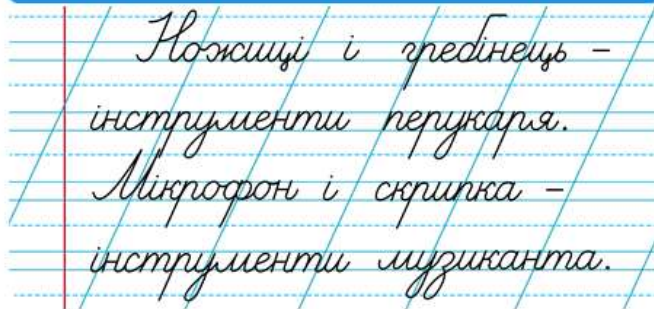 Ножиці і гребінець –
інструменти перукаря.
Мікрофон і скрипка –
інструменти музиканта.